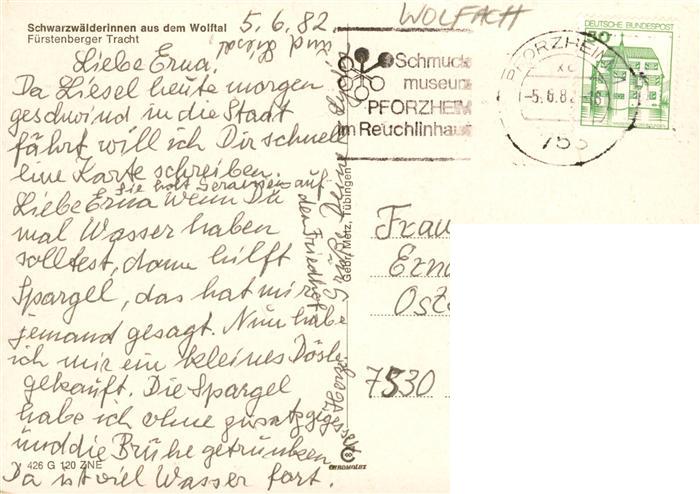 Schwarzwälderinnen aus dem Wolftal
Fürstenberger Tracht
5.6.82.
WOLFACH
Liebe Erna.
Da Liesel heute morgen
geschwind in die Staat
fährt will ich Dir schnell
eine Karte schreiben.
Sie holt Geranien auf
den Friedhof.
Liebe Erna wenn Du
mal Wasser haben
solltest, dann hilft
Spargel, das hat mir
jemand gesagt. Nun habe
ich mir ein kleines Dösle
gekauft. Die Spargel
habe ich ohne zusatz gegessen
und die Brühe getrunken
Da ist viel Wasser fort.
Herzl. Grüße Deine
und
426 G 120 ZNE
Gebr. Metz, Tübingen
CHROMOLUX
Schmuck
museum
PFORZHEIM
im Reuchlinhaus
PFORZHEIM
-5.6.82
753
DEUTSCHE BUNDESPOST
50
Frau
Erna
7530